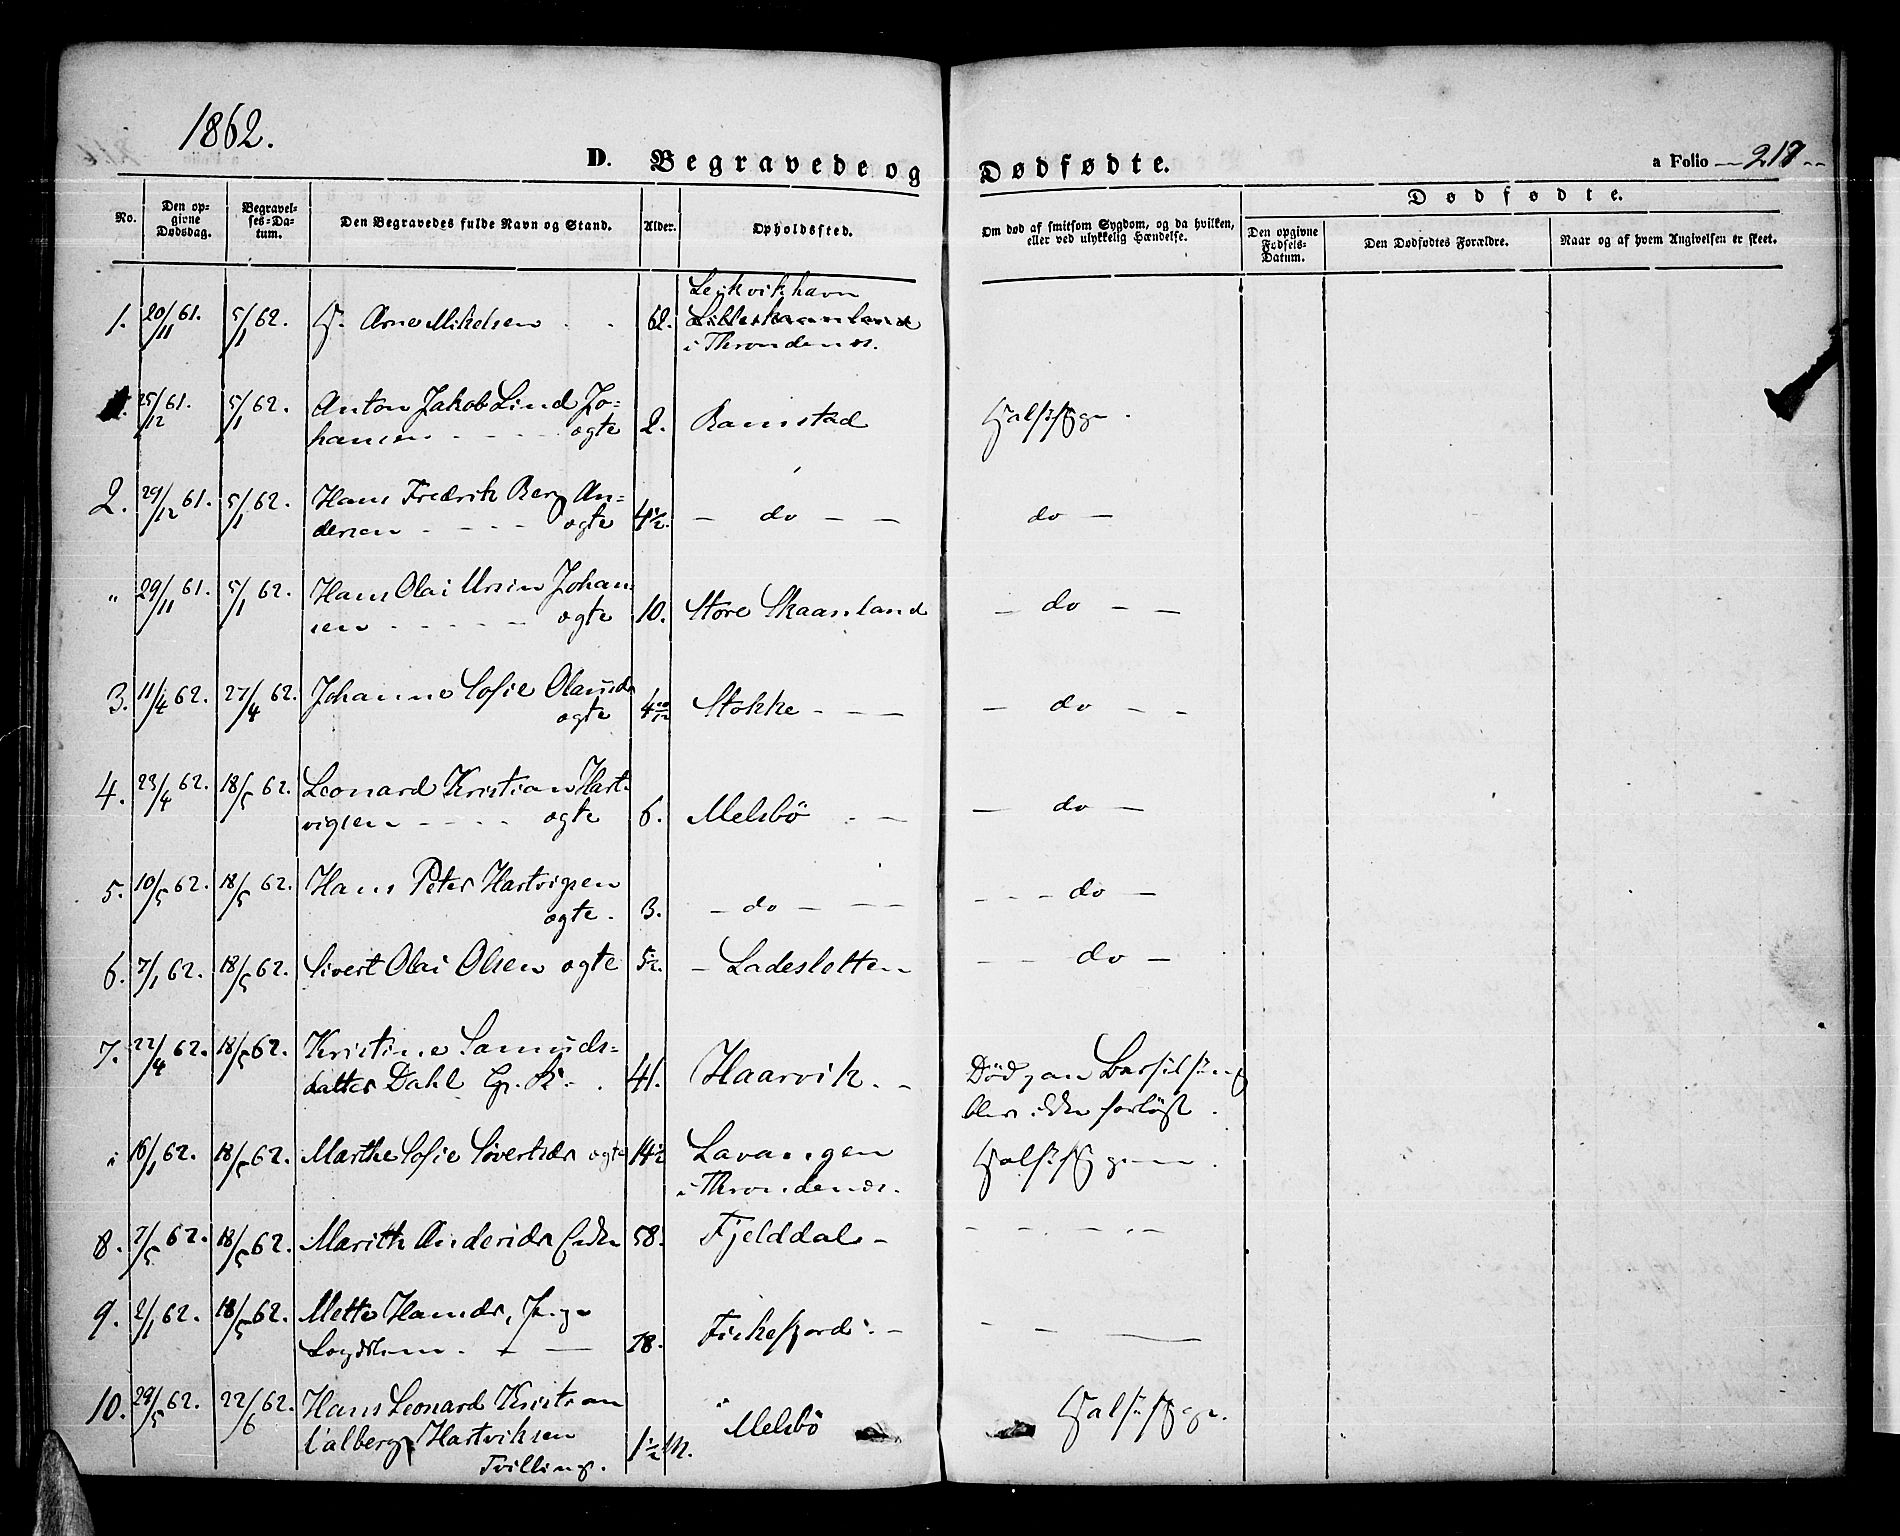 1862.
D. Begravede og Dødfødte.
a Folio 217
No.
Den opgivne Dødsdag.
Begravelses-Datum.
Den Begravedes fulde Navn og Stand.
Alder.
Opholdssted.
Om død af smitsom Sygdom, og da hvilken, eller ved ulykkelig Hændelse.
Dødfødte.
Den opgivne Fødsels-Datum.
Den Dødfødtes Forældre.
Naar og af hvem Angivelsen er skeet.
Leikvikhavn
1. 20/11 61. 5/1 62. Arne Mikelsen 62. Lilleskaanland
i Throndenæs.
25/12 61. 5/1 62. Anton Jakob Lind Jo=
hansen ægte 2. Ramstad Halssyge.
2. 29/12 61. 5/1 62. Hans Fredrik Berg An=
dersen ægte 4½. do do
" 29/11 61. 5/1 62. Hans Olai Ursin Johan=
sen ægte 10. Store Skaanland do
3. 11/4 62. 27/4 62. Johanne Sofie Olausdr
ægte 4 10/12 Stokke do
4. 23/4 62. 18/5 62. Leonard Kristian Hart=
vigsen ægte 6. Melsbö do
5. 10/5 62. 18/5 62. Hans Peter Hartvigsen
ægte. 3. do do
6. 7/1 62. 18/5 62. Sivert Olai Olsen ægte 5½. Ladesletten do
7. 22/4 62. 18/5 62. Kristine Samuels=
datter Dahl G. K. 41. Haarvik. Död, an Barselseng
blev ikke forlöst.
i 16/1 62. 18/5 62. Marthe Sofie Sivertsdr ægte 14½ Lavangen Halssygen.
i Throndenæs.
8. 2/5 62. 18/5 62. Marith Andersdr Enke 58. Fjelddal
9. 2/1 62. 18/5 62. Mette Hansdr, Pige
Lægdslem. 78. Fiskefjord
10. 29/5 62. 22/6 62. Hans Leonard Kristian
Valberg Hartviksen 1½ M. Melsbö Halssyge.
Tvilling.